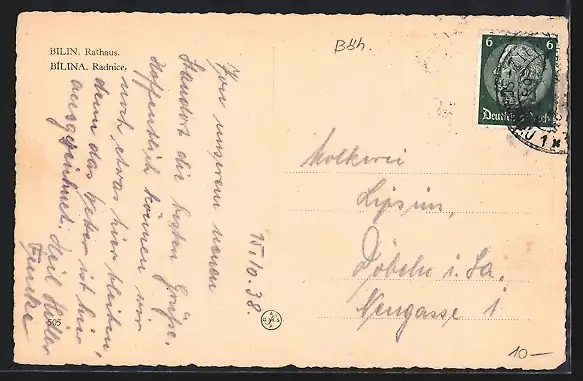 BILIN. Rathaus.
BÍLINA. Radnice.
Bhh.
6 6
Deutsches Reich
15.10.38.
Von unserem neuen
Standort die besten Grüße.
Hoffentlich können wir
noch etwas hier bleiben,
denn das Wetter ist hier
ausgezeichnet. Heil Hitler
Molkerei
Döbeln i. Sa.
Neugasse 1
505
10—